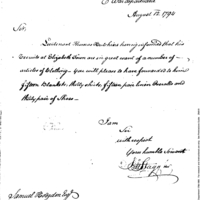 War Department
August 12, 1794
Sir,
Lieutenant Thomas Hutchins having informed that his
recruits at Elizabeth Town are in great want of a number of
articles of Clothing. You will please to have forwarded to him
fifteen Blankets, thirty shirts, fifteen pair linen Overalls and
thirty pair of Shoes.
I am
Sir
with respect
Your humble Servant
Samuel Hodgdon Esqr